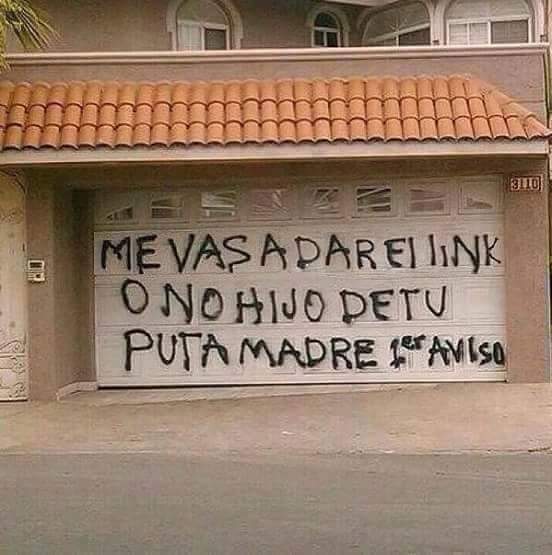 3110
ME VAS A DAR El lINK
O NO HIJO DE TU
PUTA MADRE 1er AVISO